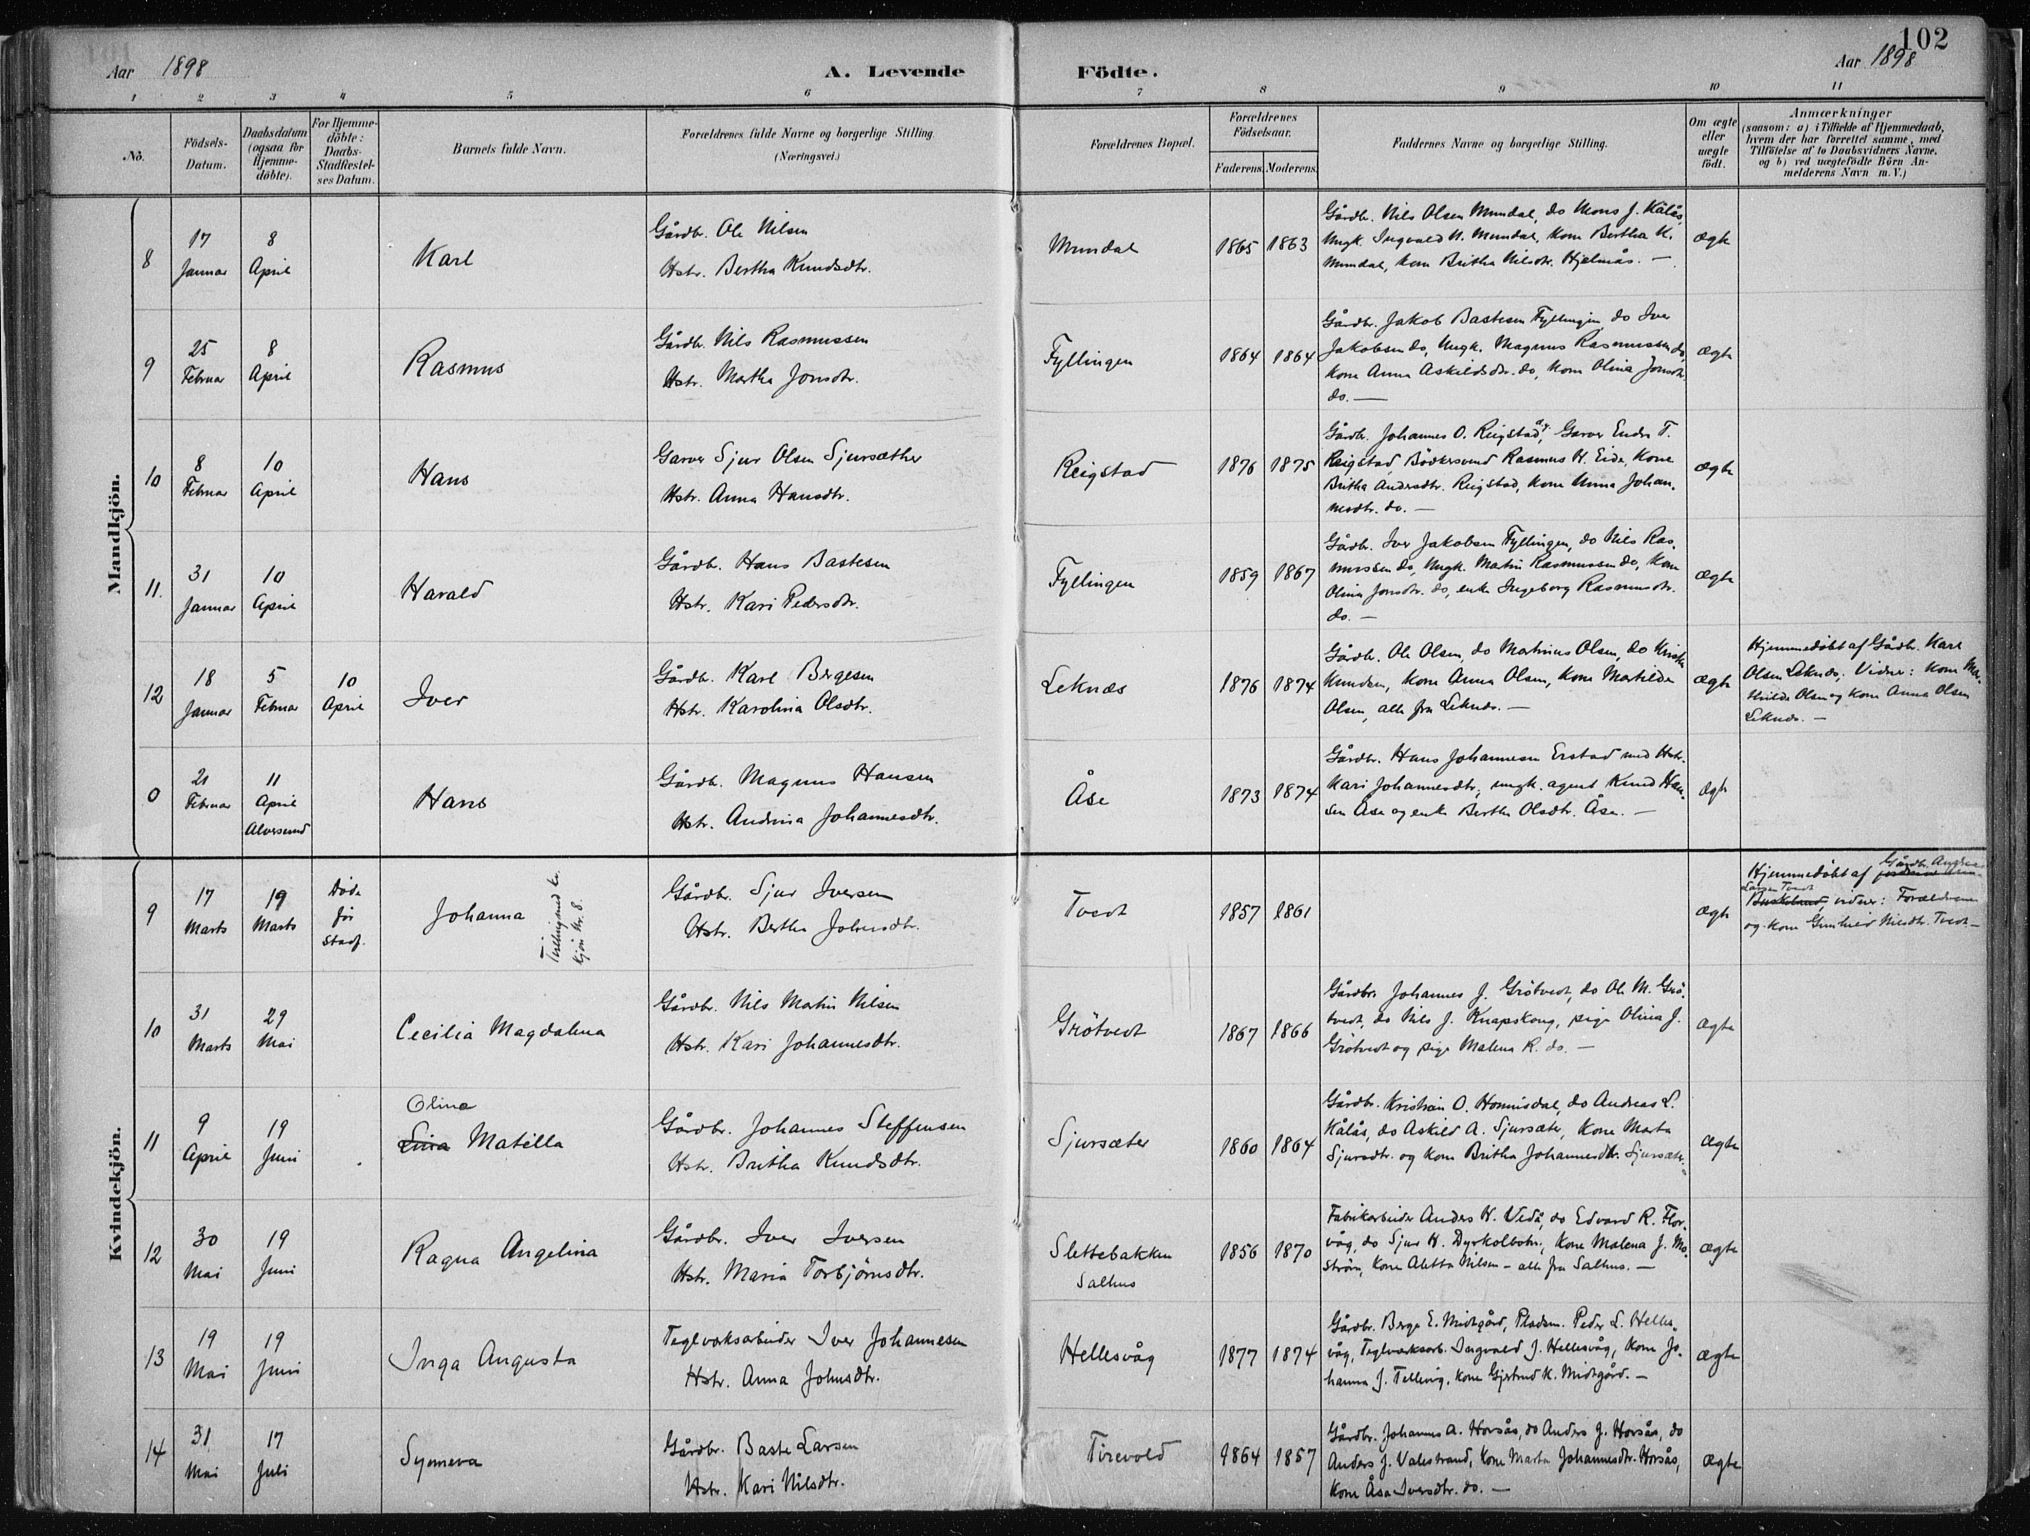 102
Aar 1898
A. Levende Födte.
Aar 1898
1 2 3 4 5 6 7 8 9 10 11
No.
Födsels-
Datum.
Daabsdatum
(ogsaa for
Hjemme-
döbte).
For Hjemme-
döbte:
Daabs-
Stadfæstel-
ses Datum.
Barnets fulde Navn.
Forældrenes fulde Navne og borgerlige Stilling.
(Næringsvei.)
Forældrenes Bopæl.
Forældrenes
Födselsaar.
Faderens. Moderens.
Faddernes Navne og borgerlige Stilling.
Om ægte
eller
uægte
födt.
Anmærkninger
(saasom: a) i Tilfælde af Hjemmedaab,
hvem der har forrettet samme, med
Tilföielse af to Daabsvidners Navne.
og b) ved uægtefödte Börn An-
melderens Navn m. V.)
Mandkjön.
8
17
Januar
8
April
Karl
Gårdbr. Ole Nilsen
Hstr. Bertha Knudsdtr.
Mundal
1865 1863
Gårdbr. Nils Olsen Mundal, do Mons J. Kålås,
Ungk. Ingvald N. Mundal, kone Bertha K.
Mundal, kone Britha Nilsdtr. Hjelmås. —
ægte
9
25
Februar
8
April
Rasmus
Gårdbr. Nils Rasmussen
Hstr. Martha Jonsdtr.
Fyllingen
1864 1864
Gårdbr. Jakob Bastesen Fyllingen, do Iver
Jakobsen do, Ungk. Magnus Rasmussen do,
kone Anna Askildsdtr. do, kone Olina Jonsdtr.
do. —
ægte
10
8
Februar
10
April
Hans
Garver Sjur Olsen Sjursæther
Hstr. Anna Hansdtr.
Reigstad
1876 1875
Gårdbr. Johannes O. Reigstad, Garver Endre T.
Reigstad, Bödkersvend Rasmus H. Eide, kone
Britha Andersdtr. Reigstad, kone Anna Johan-
nesdtr. do. —
ægte
11.
31
Januar
10
April
Harald
Gårdbr. Hans Bastesen
Hstr. Kari Pedersdtr.
Fyllingen
1859 1867
Gårdbr. Iver Jakobsen Fyllingen, do Nils Ras-
mussen do, Ungk. Martin Rasmussen do, kone
Olina Jonsdtr. do, enke Ingeborg Rasmusdtr.
do. —
ægte
12
18
Januar
5
Februar
10
April
Iver
Gårdbr. Karl Bergesen
Hstr. Karolina Olsdtr.
Leknæs
1876 1874
Gårdbr. Ole Olsen, do Martinius Olsen, do
Knudsen, kone Anna Olsen, kone Mathilde
Olsen, alle fra Leknæs. —
ægte
Hjemmedöbt af Gårdbr. Karl
Olsen Leknæs; Vidner: kone Ma-
thilde Olsen og kone Anna Olsen
Leknæs. —
0
21
Februar
11
April
Alversund
Hans
Gårdbr. Magnus Hansen
Hstr. Andrina Johannesdtr.
Åse
1873 1874
Gårdbr. Hans Johannesen Erstad med Hstr.
Kari Johannesdtr, ungk. agent Knud Han-
sen Åse og enke Bertha Olsdtr. Åse. —
ægte
Kvindekjön.
9
17
Marts
19
Marts
Död
för
stadf.
Johanna
Tvilling med
kjön Nr. 8.
Gårdbr. Sjur Iversen
Hstr. Bertha Johnsdtr.
Tvedt
1857 1861
ægte
Gårdbr. Anders
Hjemmedöbt af
Larsen Tvedt
vidner: Forældrene
og kone Gunhild Nilsdtr. Tvedt —
10
31
Marts
29
Mai
Cecilia Magdalena
Gårdbr. Nils Martin Nilsen
Hstr. Kari Johannesdtr.
Grötvedt
1867 1866
Gårdbr. Johannes J. Grötvedt, do Ole M. Grö-
tvedt, do Nils J. Knapskog, pige Olina J.
Grötvedt og pige Malena R. do. —
ægte
11
9
April
19
Juni
Olina
Lina Matilla
Gårdbr. Johannes Steffensen
Hstr. Britha Knudsdtr.
Sjursæter
1860 1864
Gårdbr. Kristian O. Hommsdal, do Andreas L.
Kålås, do Askild A. Sjursæter, kone Marta
Sjursdtr. og kone Britha Johannesdtr. Sjursæter —
ægte
12
30
Mai
19
Juni
Ragna Angelina
Gårdbr. Iver Iversen
Hstr. Maria Torbjörnsdtr.
Slettebakken
Salhus
1856 1870
Fabrikarbeider Anders N. Vedå, do Edvard R. Flor-
våg, do Sjur H. Dyrkolbotn, kone Malena J. Mo-
ström, kone Aletta Nilsen – alle fra Salhus. —
ægte
13
19
Mai
19
Juni
Inga Augusta
Teglværksarbeider Iver Johannesen
Hstr. Anna Johnsdtr.
Hellesvåg
1877 1874
Gårdbr. Berge E. Midtgård, Pladsm. Peder L. Helles-
våg, Teglværksarb. Ingvald J. Hellesvåg, kone Jo-
hanna J. Tellevig, kone Gjertrud K. Midtgård. —
ægte
14
31
Mai
17
Juli
Synneva
Gårdbr. Baste Larsen
Hstr. Kari Nilsdtr.
Tirevold
1864 1857
Gårdbr. Johannes A. Horsås, do Anders J. Horsås, do
Anders J. Valestrand, kone Marta Johannesdtr. Horsås,
kone Åsa Iversdtr. do. —
ægte